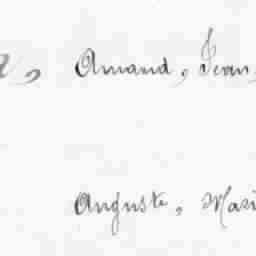 Amand, Jean,
Auguste, Mari